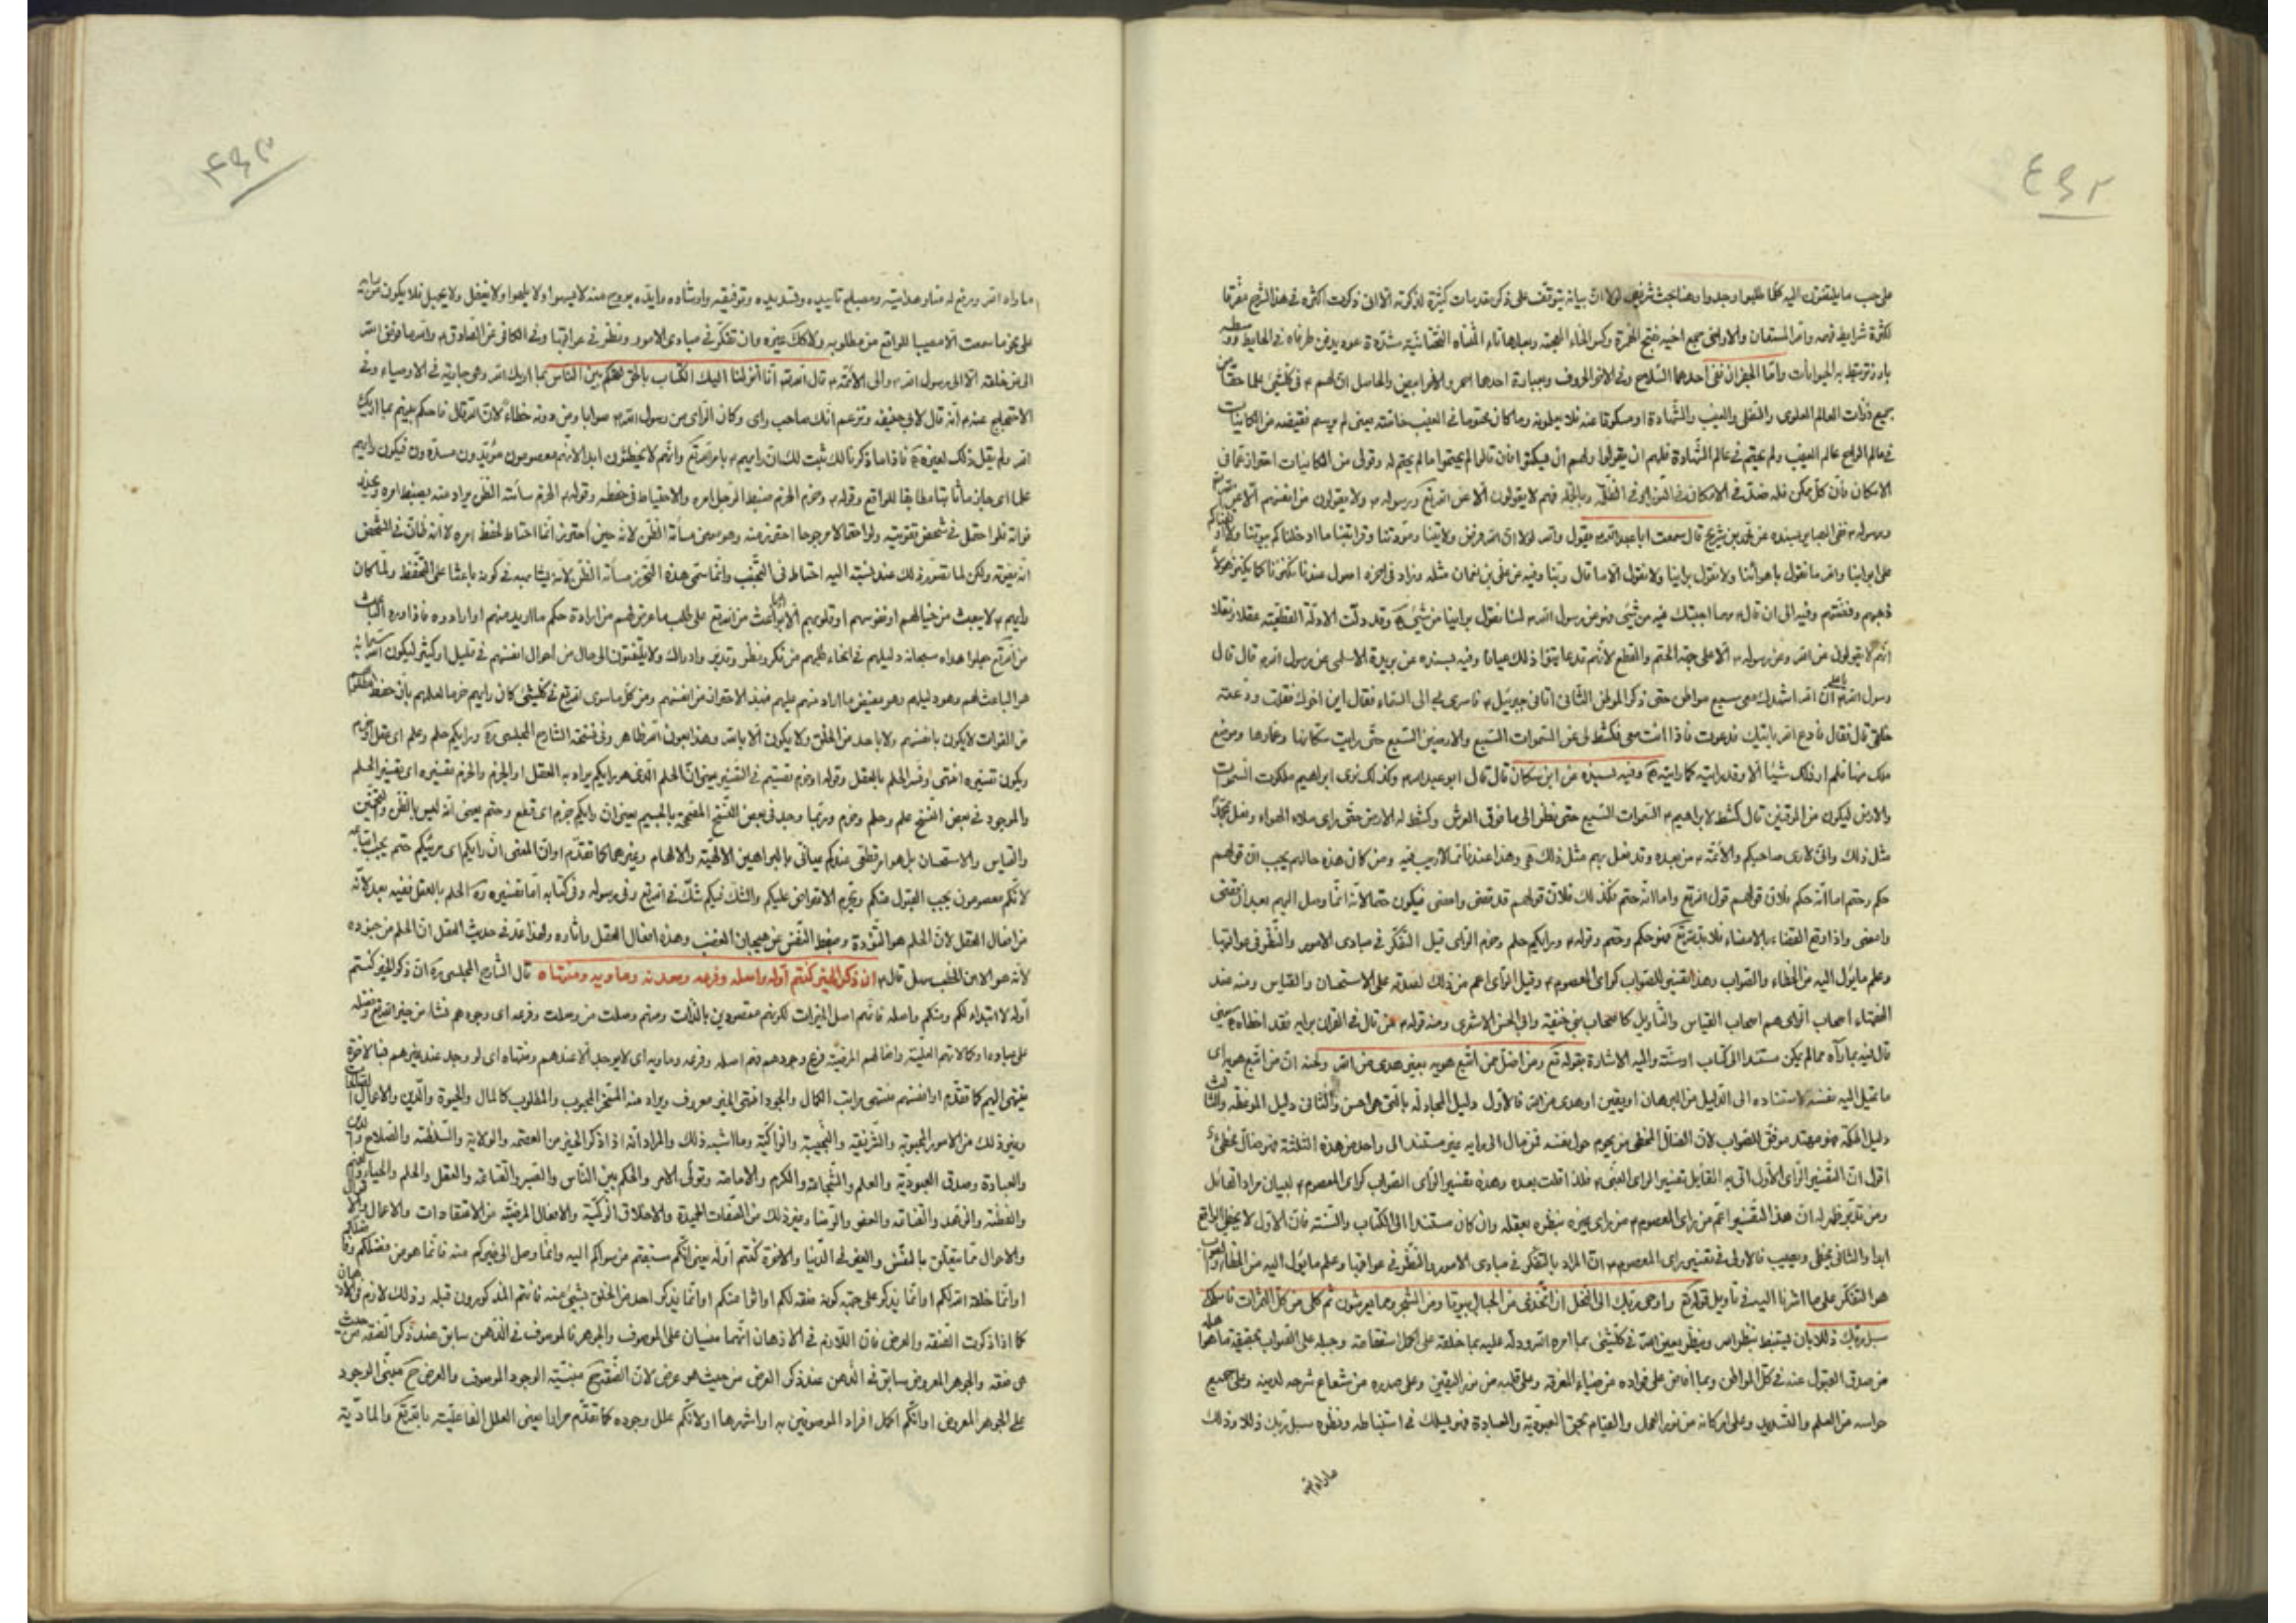 ٤٩٢
على حب ما يلتفتون اليه كلما طلبوا وجدوا وهنا بحث شريف لولا ان بيانه يتوقف على ذكر مقدمات كثيرة لذكرته الا انى ذكرت اكثره فى هذا الشرح مفرقا
لكثرة شرايط فهمه والله المستعان والاواخى جمع اخية بفتح الهمزة وكسر الخاء المعجمة وبعدها تاء المثناة التحتانية مشددة عود يدفن طرفاه فى الحايط
بارز تربط به الحيوانات واما الحيزان ففى احدهما السلاح وفى الاخر الحروف وبعبارة احدهما احمر والاخر ابيض والحاصل ان لهم فى كلشئ علما حقا
جميع ذرات العالم العلوى والسفلى والغيب والشهادة او مسكوتا عنه فلا يعلمونه وما كان محتوما فى الغيب خاصته بمعنى لم يرسم نقيضه من الكاينات
فى عالم الواح عالم الغيب ولم يحتم فى عالم الشهادة فلهم ان يقولوا ولهم ان يسكتوا فان قالوا لم يحتموا ما لم يحتم له وقولى من الكاينات احتراز عما فى
الامكان فان كل ممكن فله ضد فى الامكان وبالجملة فهم لا يقولون الا عن الله تع ورسوله ولا يقولون من انفسهم الا عن
ورسوله ففى البصاير بسنده عن محمد بن شريح قال سمعت ابا عبد الله يقول والله لولا ان الله فرض ولايتنا ومودتنا وقرابتنا ما ادخلناكم بيوتنا ولا
على ابوابنا والله ما نقول باهوائنا ولا نقول براينا ولا نقول الا ما قال ربنا وفيه عن على بن النعمان مثله وزاد فى اخره اصول عندنا نكنزها كما يكنز هؤلاء
ذهبهم وفضتهم وفيه الى ان قال مهما اجبتك فيه من شئ فهو من رسول الله لسنا نقول براينا من شئ وقد دلت الادلة القطعية عقلا ونقلا
انهم لا يقولون عن الله وعن رسوله الا على جهة الحتم والقطع لانهم قد عاينوا ذلك عيانا وفيه بسنده عن بريدة الاسلمى عن رسول الله قال قال
رسول الله يا على ان الله اشهدك معى سبع مواطن حتى ذكر الموطن الثانى اتانى جبرئيل فاسرى بى الى السماء فقال اين اخوك فقلت ودعته
خلفى قال فقال فادع الله ياتيك به فدعوت فاذا انت معى فكشط لى عن السموات السبع والارضين السبع حتى رايت سكانها وعمارها وموضع
ملك منها فلم ار من ذلك شيئا الا وقد رايته كما رايته وفيه بسنده عن ابن مسكان قال قال ابو عبد الله وكذلك نرى ابراهيم ملكوت السموات
والارض وليكون من الموقنين قال كشط لابراهيم السموات السبع حتى نظر الى ما فوق العرش وكشط له الارض حتى راى ما فى الهواء وفعل بمحمد
مثل ذلك وانى لارى صاحبكم والائمة من بعده وقد فعل بهم مثل ذلك وهذا عندنا مما لا ريب فيه ومن كان هذه حالهم يجب ان قولهم
حكم وحتم اما انه حكم فلان قولهم قول الله تع واما انه حتم فكذلك فلان قولهم قد قضى وامضى فيكون حتما لانه انما وصل اليهم بعد ان قضى
وامضى واذا وقع القضاء بالامضاء فلا بد فهو حكم وحتم وقوله ورايكم حلم وحزم الراى قيل التفكر فى مبادى الامور والنظر فى عواقبها
وعلم ما يؤل اليه من الخطاء والصواب وهذا تفسير للصواب كراى المعصوم وقيل الراى اعم من ذلك لصدقه على الاستحسان والقياس ومنه عند
الفقهاء اصحاب الراى هم اصحاب القياس والتاويل كاصحاب ابى حنيفة وابى الحسن الاشعرى ومنه قوله من قال فى القران برايه فقد اخطاء يعنى
قال فيه بما رآه مما لم يكن مستندا الى كتاب او سنة واليه الاشارة بقوله تع ومن اضل ممن اتبع هويه بغير هدى من الله ولحنه ان من اتبع هويه اى
ما تميل اليه نفسه لاستناده الى الدليل من البرهان او يقين او هدى من الله فالاول دليل المجادلة بالتى هى احسن والثانى دليل الموعظة والثالث
دليل الحكمة فهو مهتد موفق للصواب لان الضال المخطى من يحوم حول نفسه فمن مال الى رايه غير مستند الى واحد من هذه الثلثة فهو ضال مخطئ
اقول ان التفسير الراى الاول اتى به القائل تفسير الراى النبى فلذا قلت بعده وهذه تفسير الراى الصواب كراى المعصوم لبيان مراد القائل
ومن تدبر ظهر له ان هذا التفسير اعم من راى المعصوم من راى غيره بنظره بعقله وان كان مستندا الى الكتاب والسنة فان الاول لا يخطى الواقع
ابدا والثانى يخطى ويصيب فالاولى فى تفسير راى المعصوم ان المراد بالتفكر فى مبادى الامور والنظر فى عواقبها وعلم ما يؤل اليه من الخطاء والصواب
هو التفكر على ما اشرنا اليه فى تاويل قوله تع واوحى ربك الى النحل ان اتخذى من الجبال بيوتا ومن الشجر ومما يعرشون ثم كلى من كل الثمرات فاسلكى
سبل ربك ذللا بان يستنبط بنظر الله وينظر بعين الله فى كلشئ بما امره الله ودله عليه بما خلقه على اكمل استقامة وجبله على الصواب بحقيقة ما هو اهله
من صدق القبول عنه فى كل المواطن وبما افاض على فواده من ضياء المعرفة وعلى قلبه من نور اليقين وعلى صدره من شعاع شرحه لدينه وعلى جميع
حواسه من العلم والتسديد وعلى اركانه من نور العمل والقيام بحق العبودية والعبادة فهو يسلك فى استنباطه ونظره سبل ربك ذللا وذلك
ما اراه الله
٤٩٣
ما اراه الله ورفع له منار هدايته ومصباح تاييده وتسديده وتوفيقه وارشاده وايده بروح منه لا يسهوا ولا يلهوا ولا يغفل ولا يجهل فلا يكون
على نحو ما سمعت الا مصيبا للواقع من مطلوبه ولا كذلك غيره وان تفكر فى مبادى الامور ونظر فى عواقبها وفى الكافى عن الصادق والله ما فوض الله
الى من خلقه الا الى رسول الله والى الائمة قال الله تع انا انزلنا اليك الكتاب بالحق لتحكم بين الناس بما اريك الله وهى جارية فى الاوصياء وفى
الاحتجاج عنه انه قال لابى حنيفة وتزعم انك صاحب راى وكان الراى من رسول الله صوابا ومن دونه خطاء لان الله قال فاحكم بينهم بما اريك
الله ولم يقل ذلك لغيره فاذا ما ذكرنا لك ثبت لك ان رايهم بامر الله تع وانهم لا يخطئون ابدا لانهم معصومون مؤيدون مسددون فيكون رايهم
علما اى جازما ثابتا مطابقا للواقع وقوله وحزم الحزم ضبط الرجل امره والاحتياط فى حفظه وقوله الحزم مسائة الظن يراد منه يضبط امره
فواته فلو احتمل فى شخص تفويته ولو احتمالا مرجوحا احترز منه وهو معنى مسائة الظن لانه حين احترز انما احتاط لحفظ امره لا انه ظان فى الشخص
انه يفوته ولكن لما تصور ذلك عند نسبته اليه احتاط فى التجنب وانما سمى هذه التحرز مسائة الظن لانه يشابهه فى كونه باعثا على التحفظ ولما كان
رايهم لا ينبعث من خيالهم او نفوسهم او قلوبهم الا بباعث من الله تع على طلب ما عرض لهم من ارادة حكم ما اريد منهم او ارادوه فاذا ورد الباعث
من الله تع جعلوا هداه سبحانه دليلهم فى انحاء طلبهم من تفكر ونظر وتدبر وادراك ولا يلتفتون الى حال من احوال انفسهم فى قليل او كثير ليكون الله سبحانه
هو الباعث لهم وهو دليلهم وهو مفيض ما اراد منهم عليهم فبهذا الاحتراز من انفسهم ومن كل ما سوى الله تع فى كلشئ كان رايهم حزما لعلمهم بان حفظ
من الفوات لا يكون بانفسهم ولا باحد من الخلق ولا يكون الا بالله وهذا بعون الله ظاهر وفى نسخة الشارح المجلسى ره ورايكم حلم وعلم اى عقل
ويكون تفسيره انتهى وفسر الحلم بالعقل وقوله او حزم تفسيرهم فى التفسير يعنى ان الحلم الذى هو رايكم يراد به العقل او الحزم والحزم تفسيره اى تفسير الحلم
والموجود فى بعض النسخ علم وحلم وحزم وربما وجد فى بعض النسخ المصححة بالجيم يعنى ان رايكم جزم اى قطع وحتم يعنى انه ليس بالظن والتخمين
والقياس والاستحسان بل هو امر قطعى عندكم يباقى بالبراهين الالهية والالهام وغيرهما كما تقدم او ان المعنى ان رايكم اى مرئيكم حتم يجب اتباعه
لانكم معصومون يجب القبول منكم ويحرم الاعتراض عليكم والشك فيكم شك فى الله تع وفى رسوله وفى كتابه اما تفسيره ره الحلم بالعقل ففيه بعد لانه
من افعال العقل لان الحلم هو التؤدة وضبط النفس عن هيجان الغضب وهذه افعال العقل واثاره ولهذا عد فى حديث العقل ان الحلم من جنوده
لانه هو الا من الخطب سهل قال ان ذكر الخير كنتم اوله واصله وفرعه ومعدنه وماويه ومنتهاه قال الشارح المجلسى ره ان ذكر الخير كنتم
اوله لابتدائه لكم ومنكم واصله فانهم اصل الخيرات لكونهم مقصودين بالذات ومنهم وصلت من وصلت وفرعه اى وجودهم نشاء من خير الله تع وفضله
على عباده او كالاتهم العلية وافعالهم المرضية فرع وجودهم فهم اصله وفرعه وماويه اى لا يوجد الا عندهم ومنتهاه اى لو وجد عند غيرهم فبالاخرة
ينتهى اليهم كما تقدم او انفسهم منتهى مراتب الكمال والجود انتهى الخير معروف ويراد منه المتخير المحبوب والمطلوب كالمال والحيوة والدين والاعمال الصالحات
وغير ذلك من الامور المحبوبة والشريفة والنجيبة والزاكية وما اشبه ذلك والمراد انه اذا ذكر الخير من العصمة والولاية والسلطنة والصلاح
والعبادة وصدق العبودية والعلم والشجاعة والكرم والامامة وتولى الامر والحكم بين الناس والصبر والقناعة والعقل والحلم والحياء
والفطنة والزهد والعفافة والعفو والرضا وغير ذلك من الصفات الحميدة والاخلاق الزكية والافعال المرضية من الاعتقادات والاعمال والاقوال
والاحوال مما يتعلق بالنفس والغير فى الدنيا والاخرة كنتم اوله يعنى انكم سبقتم من سواكم اليه وانما وصل الى غيركم منه فانما هو من فضلكم
او انما خلقه الله لكم او انما يذكر على جهة كونه صفة لكم او اثرا منكم او انما يذكر احد من الخلق بشئ منه فانتم المذكورون قبله وذلك لازم فى الاذهان
كما اذا ذكرت الصفة والعرض فان اللازم فى الاذهان انهما مبنيان على الموصوف والجوهر فالموصوف فى الذهن سابق عند ذكر الصفة من حيث
هى صفة والجوهر المعروض سابق فى الذهن عند ذكر العرض من حيث هو عرض لان الصفة ح مبنية الوجود الموصوف والعرض ح مبنى الوجود
على الجوهر المعروض او انكم اكمل افراد الموصوفين به او اشهرها او لانكم علل وجوده كما تقدم مرارا يعنى العلل الفاعلية بالله تع والمادية